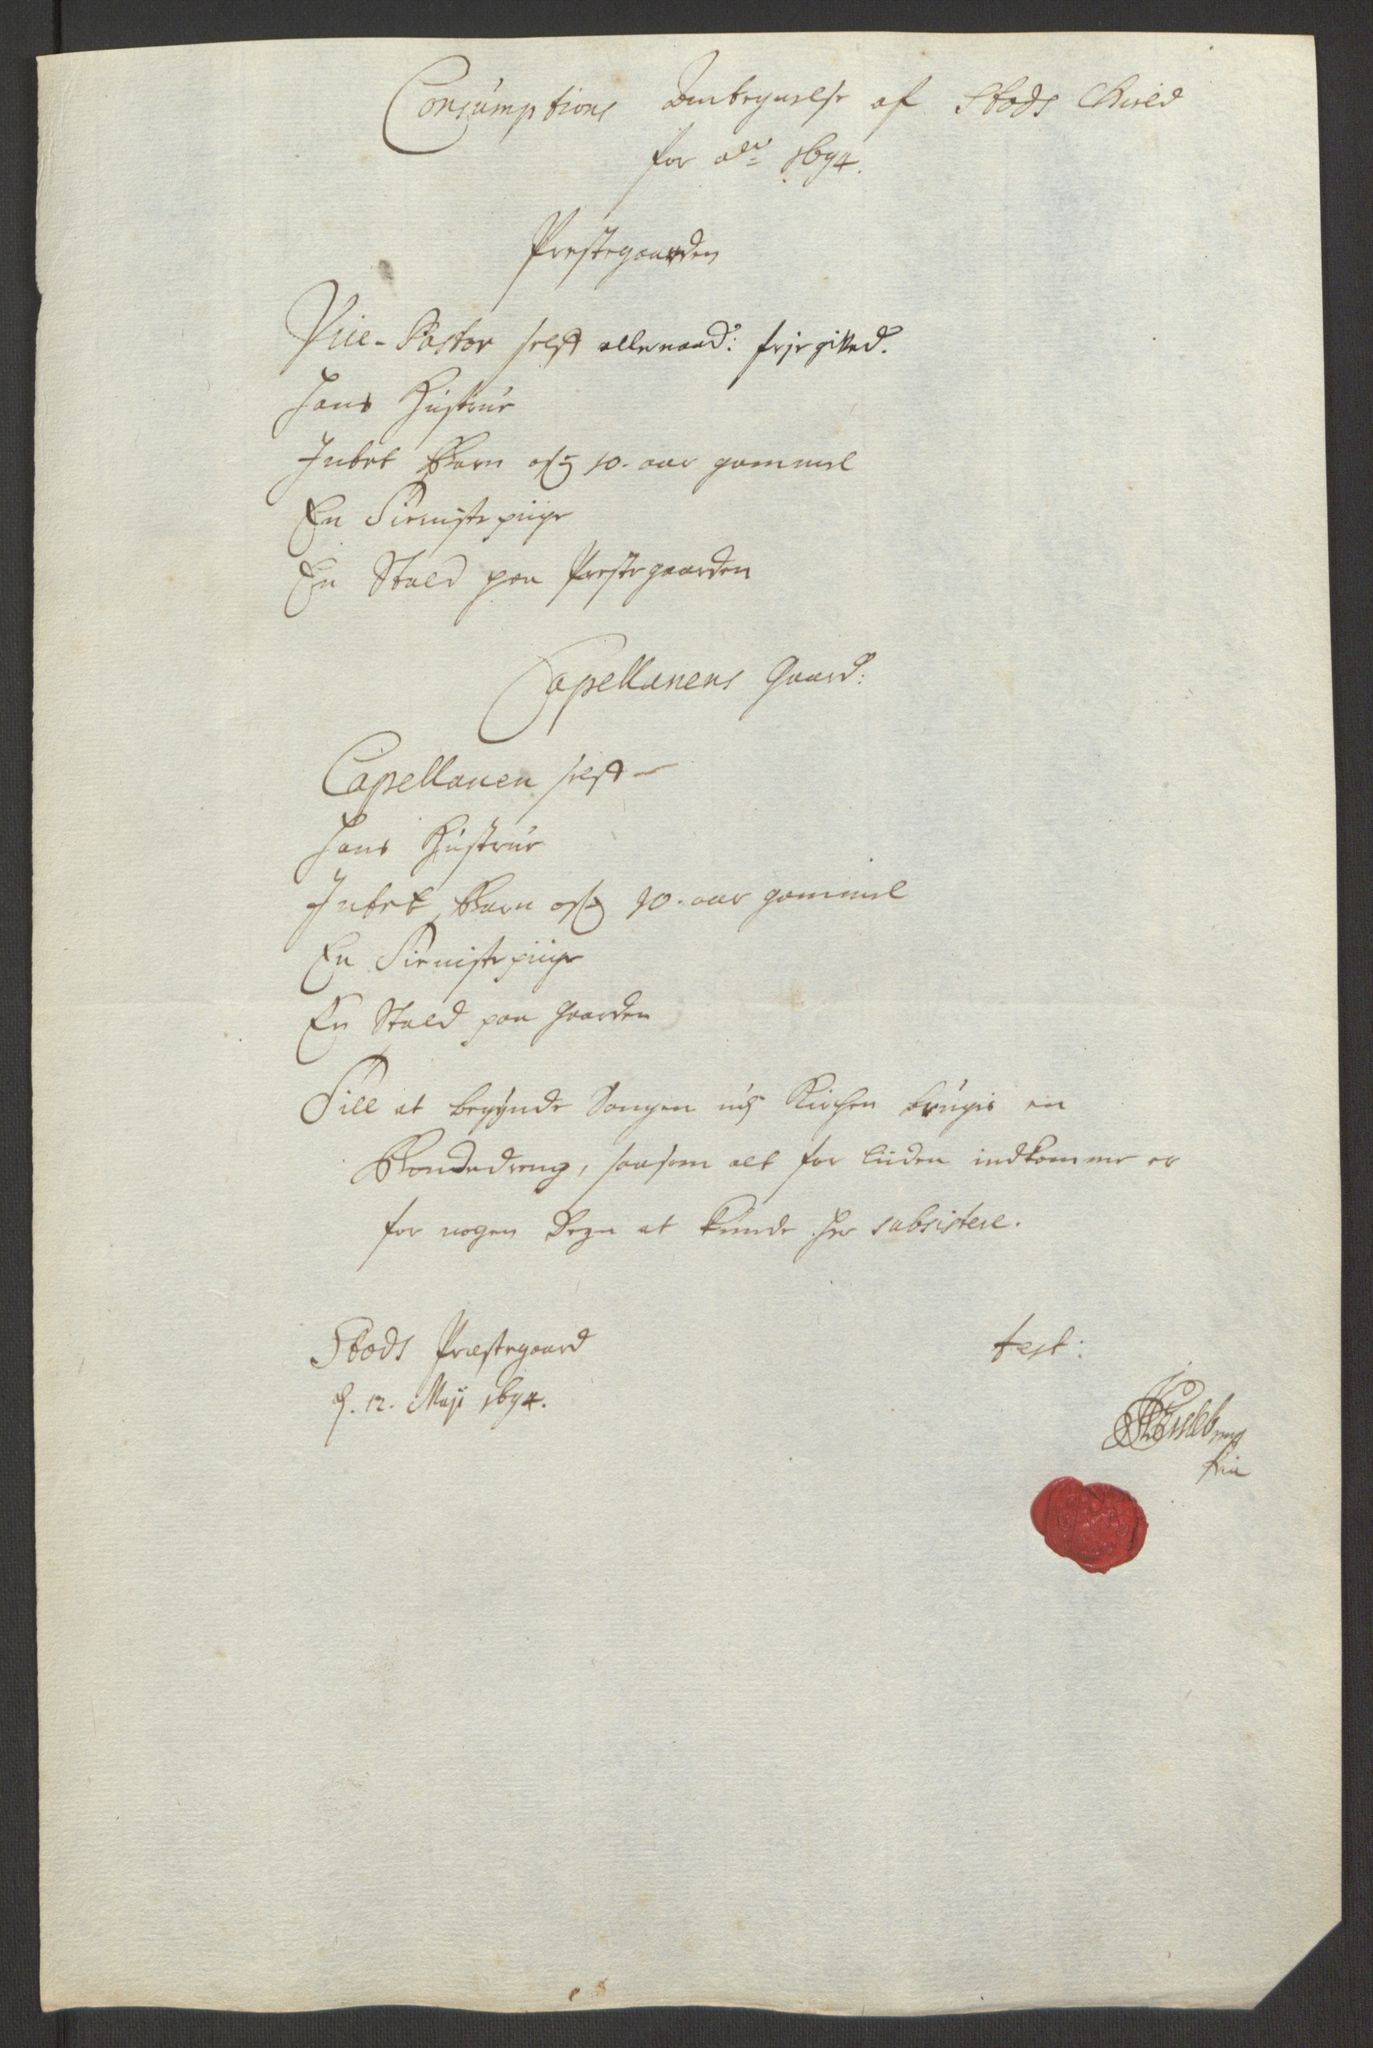 Consumptions Anteignelse af Stods Gield
for aar 1694.
Prestegaarden
Vice-Pastor selff allernaad: frjegifved.
Hans Hustrue
Intet Barn ofver 10. aar gammel
En Tieniste piige
En Stald paa Prestegaarden
Capellanens Gaard:
Capellanen selff
Hans Hustrue
Intet Barn ofver 10. aar gammel
En Tieniste piige
En Stald paa Gaarden
Till at begynde Sangen udj Kirchen brugis en
Bondedreng, saasom alt for liiden indkomme er
for nogen Degn at kunde her subsistere.
Stods Præstegaard
d. 12. Maji 1694.
test: